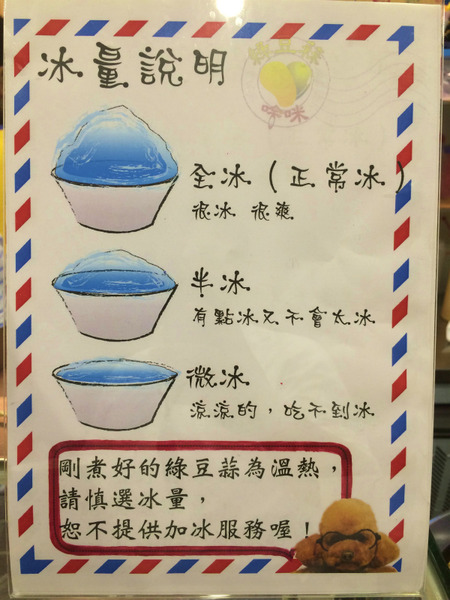 冰量說明
綠豆蒜
啥咪
全冰（正常冰）
很冰 很爽
半冰
有點冰又不會太冰
微冰
涼涼的，吃不到冰
剛煮好的綠豆蒜為溫熱，
請慎選冰量，
恕不提供加冰服務喔！